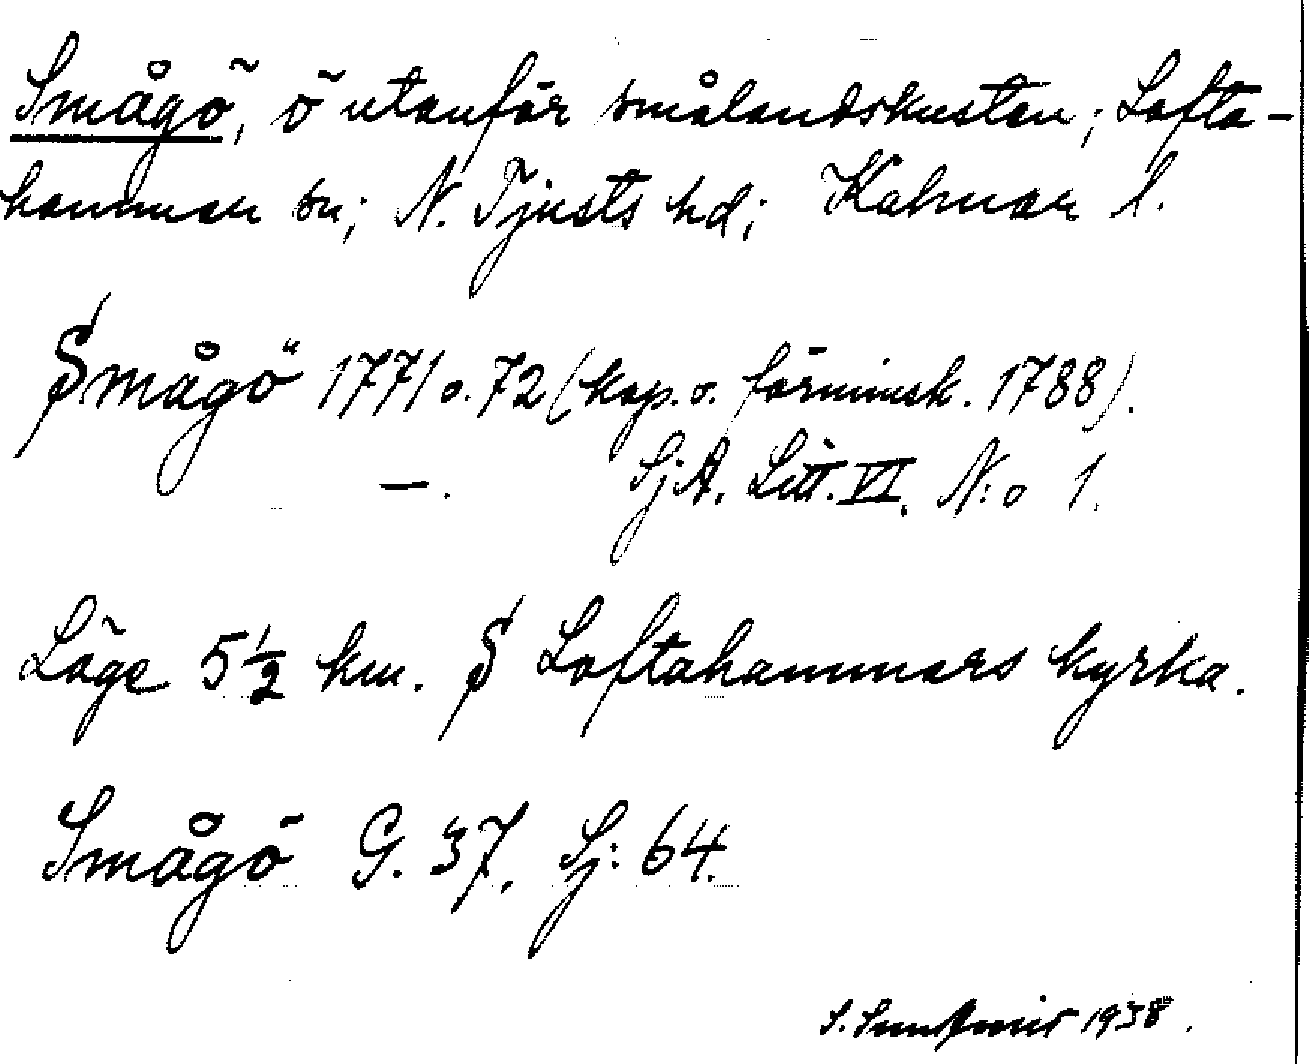 Smågö, ö utanför smålandskusten; Lofta-
hammar sn; N. Tjusts hd; Kalmar l.
Smågö 1771 o. 72 (kop. o. förminsk. 1788).
—. SjA. Litt. VI. N:o 1.
Läge 5 1/2 km. S Loftahammars kyrka.
Smågö G. 37, Sj: 64.
S. 1938.